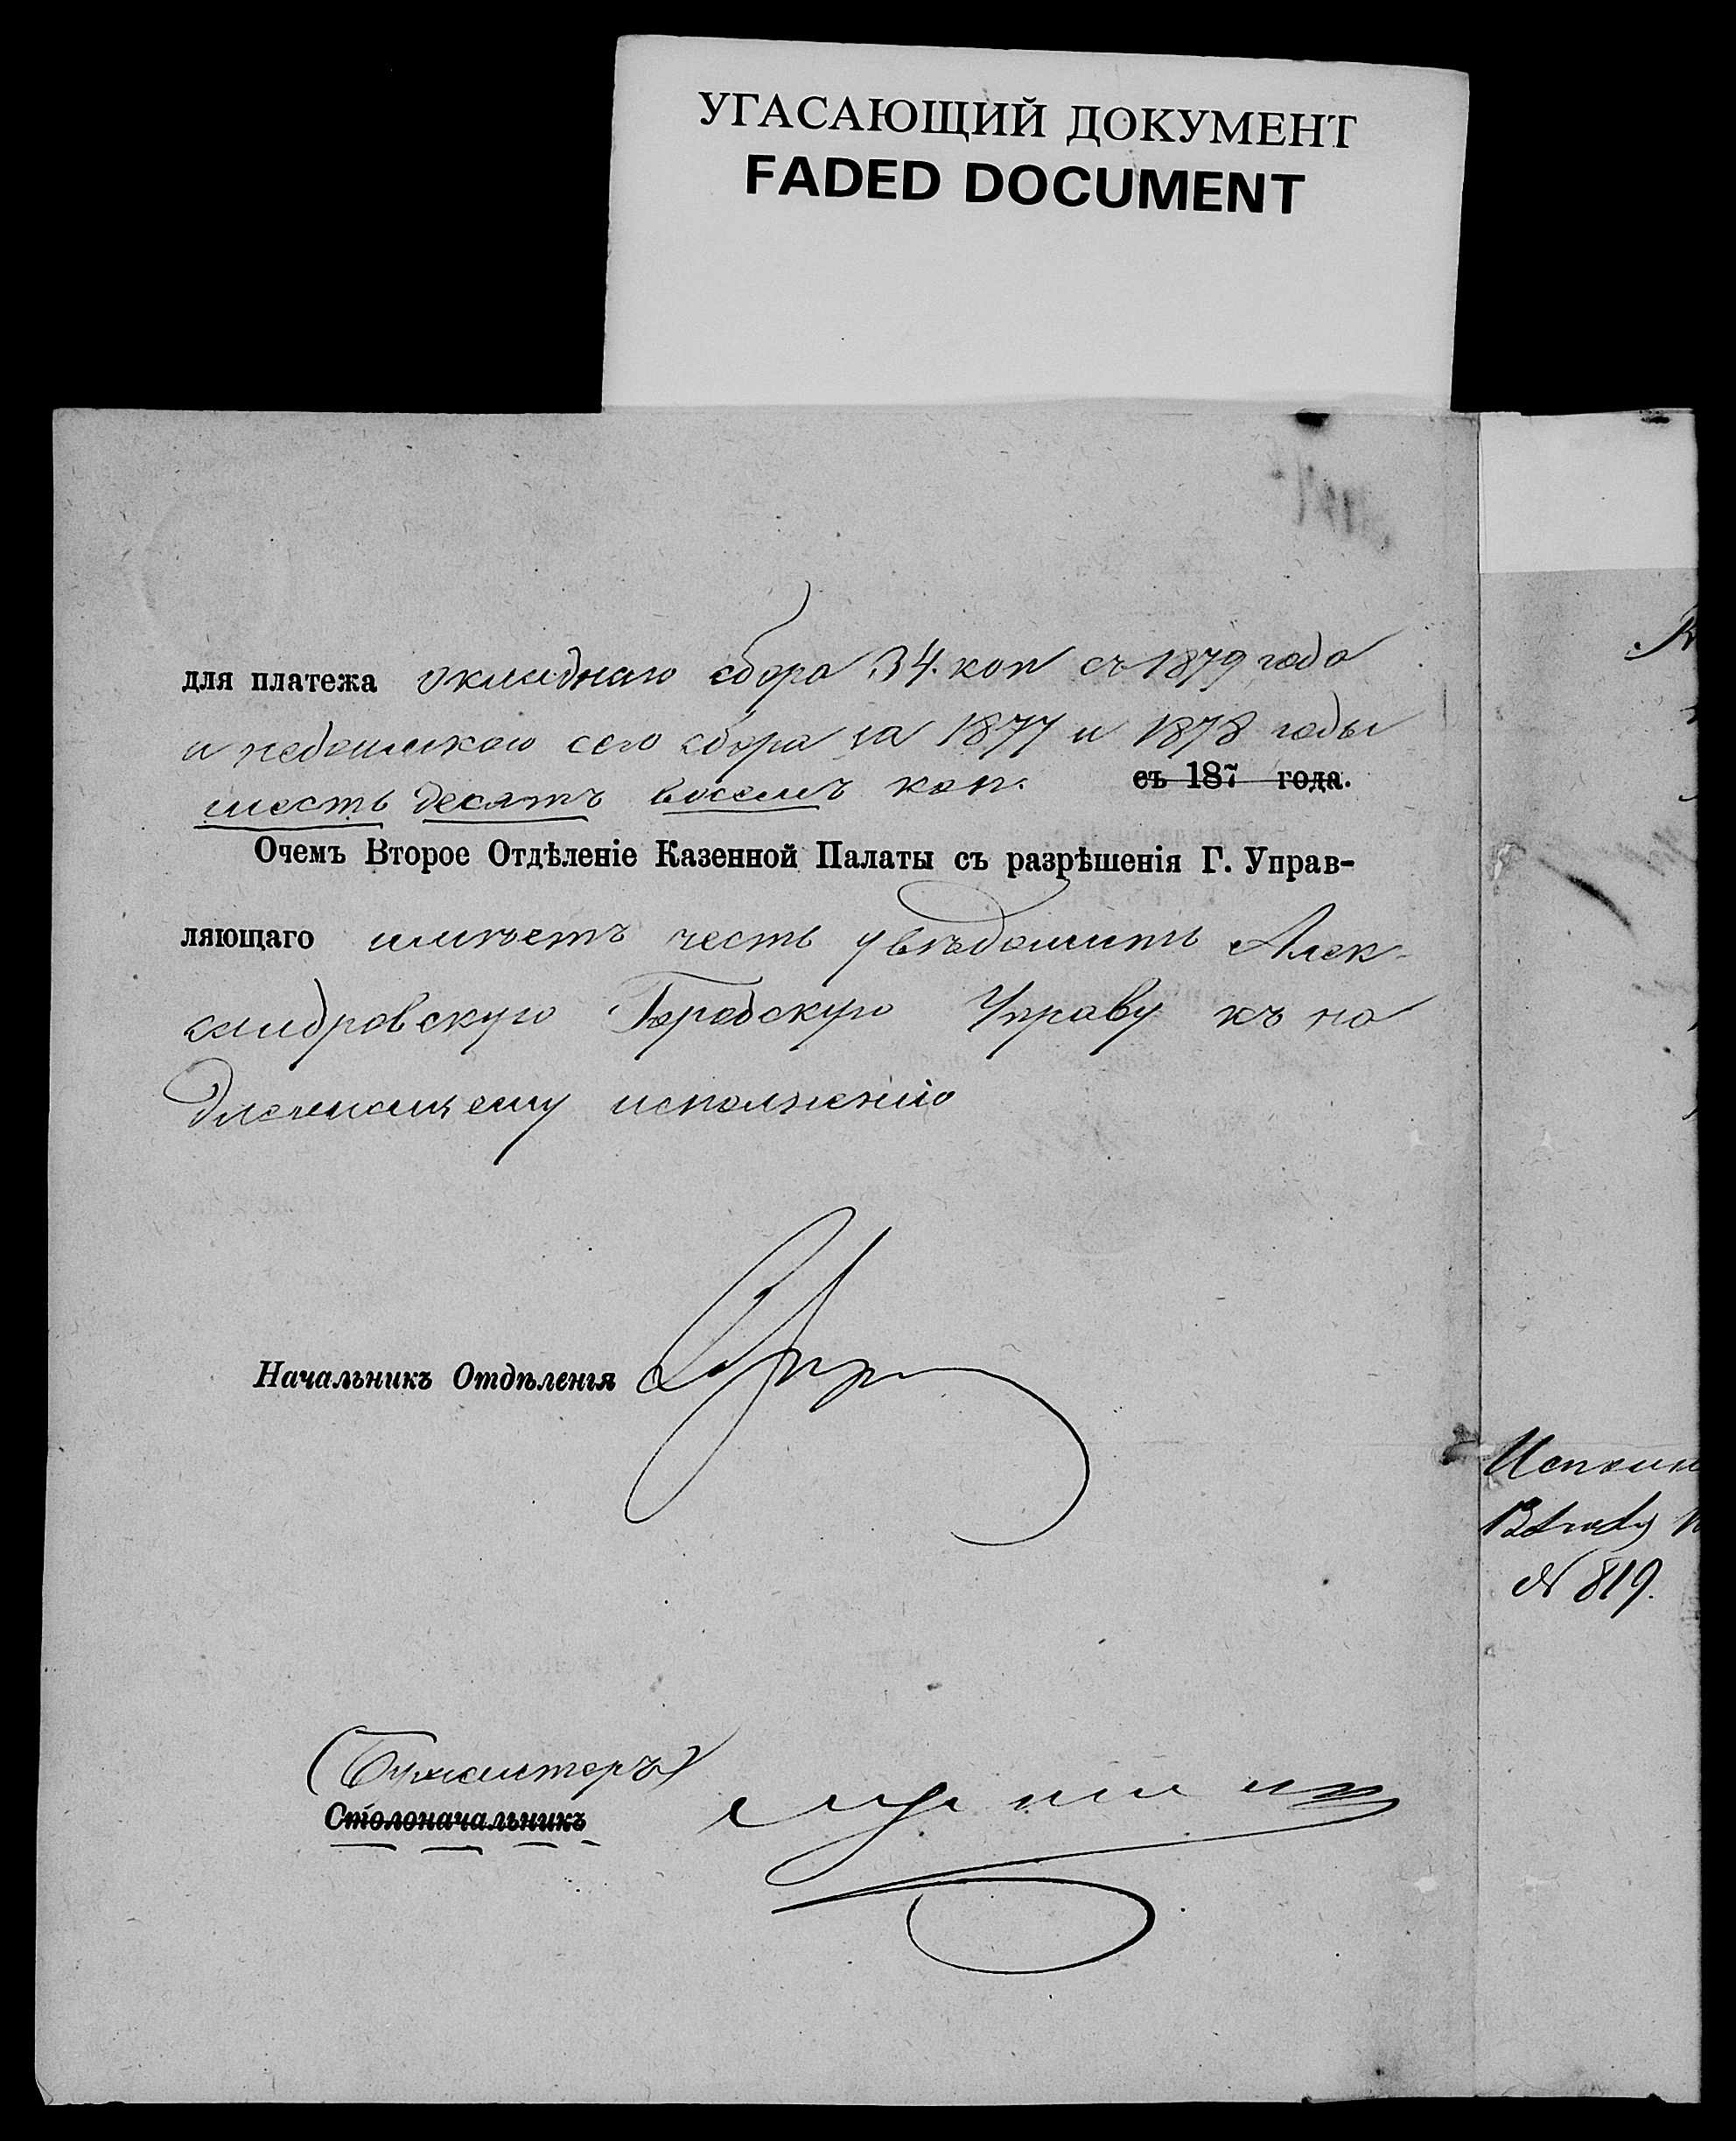 УГАСАЮЩИЙ ДОКУМЕНТ
FADED DOCUMENT
для платежа окладнаго сбора 34. коп съ 1879 года
и недоимкою сего сбора за 1877 и 1878 годы
шесть десятъ восемь коп. съ 187 года.
Очемъ Второе Отдѣленіе Казенной Палаты съ разрѣшенія Г. Управ-
ляющаго имѣетъ честь увѣдомить Алек-
сандровскую Городскую Управу къ на
длежащему исполненію
Начальникъ Отдѣленія
(Бухгалтеръ)
Столоначальникъ
№ 819.